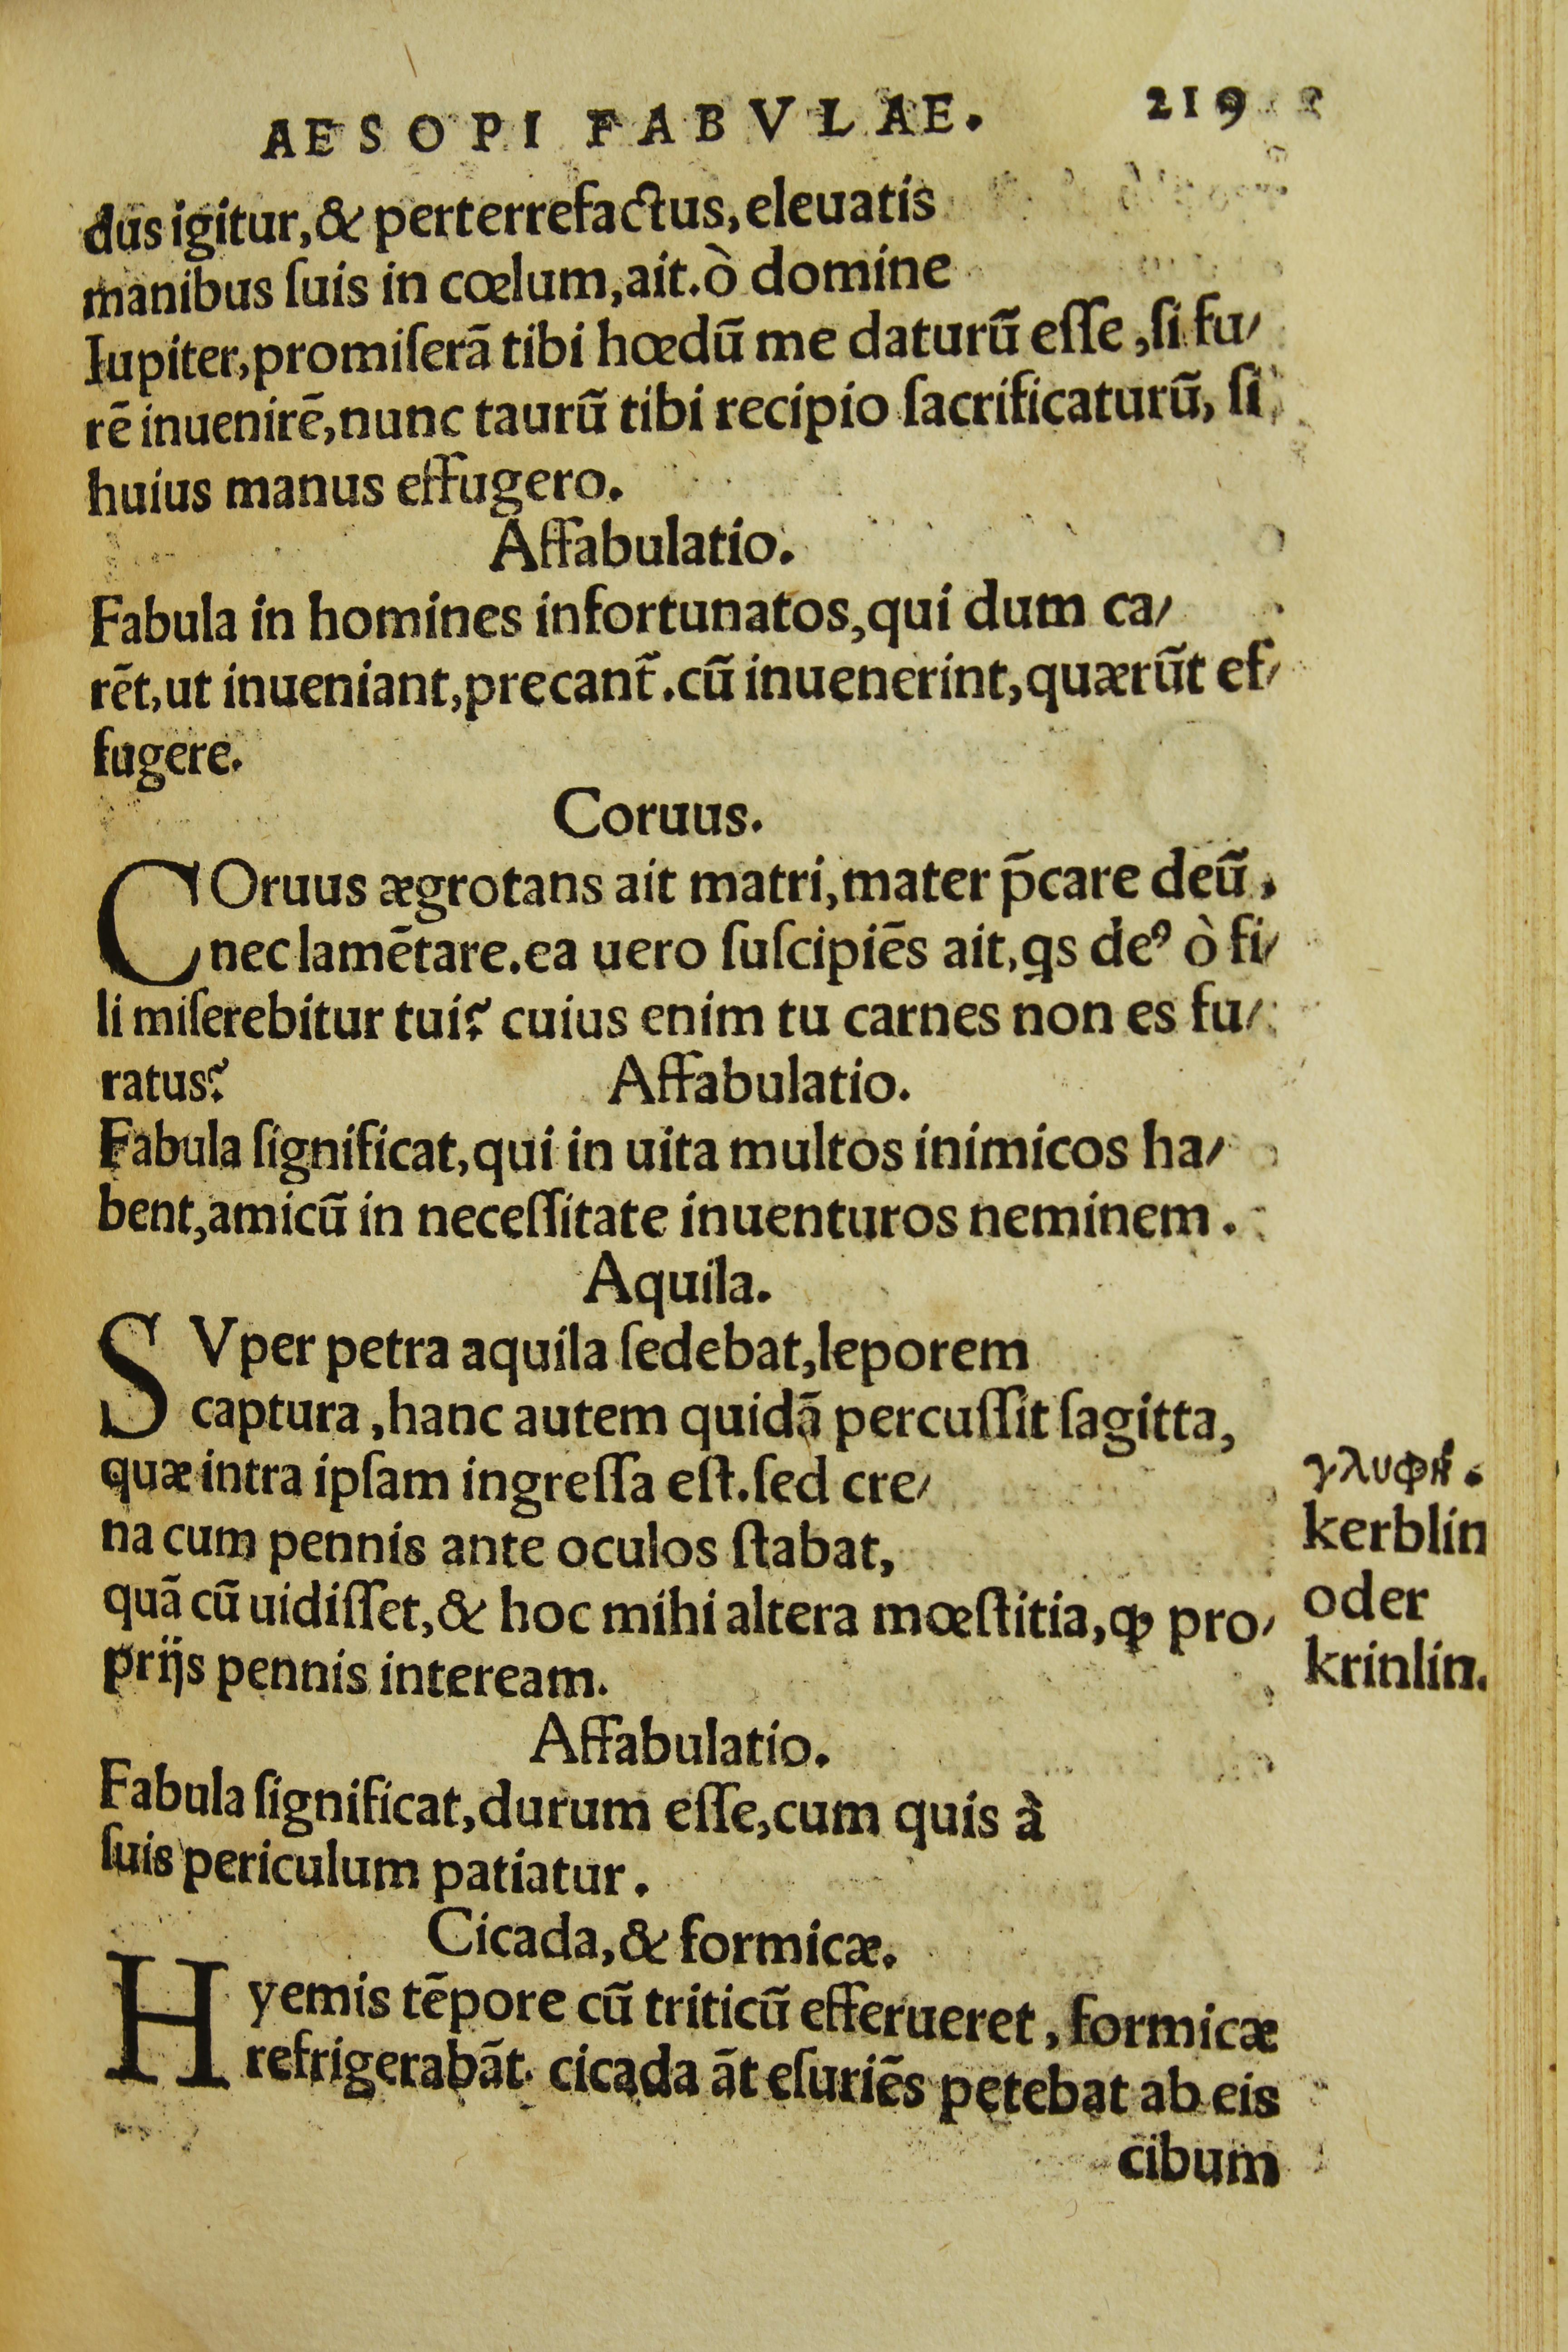 AESOPI FABVLAE. 219
dus igitur,& perterrefactus, eleuatis
manibus ſuis in cœlum,ait.ò domine
Iupiter,promiſerã tibi hœdũ me daturũ eſſe ,ſi fu/
rẽ inuenirẽ,nunc taurũ tibi recipio ſacrificaturũ, ſi
huius manus effugero.
Affabulatio.
Fabula in homines infortunatos,qui dum ca/
rẽt,ut inueniant,precant̃.cũ inuenerint,quærũt ef/
fugere.
Coruus.
COruus ægrotans ait matri,mater p̃care deũ,
nec lamẽtare.ea uero ſuſcipiẽs ait,qs deꝰ ò fi/
li miſerebitur tui? cuius enim tu carnes non es fu/
ratus? Affabulatio.
Fabula ſignificat,qui in uita multos inimicos ha/
bent,amicũ in neceſſitate inuenturos neminem.
Aquila.
SVper petra aquila ſedebat,leporem
captura ,hanc autem quidã percuſſit ſagitta,
quæ intra ipſam ingreſſa eſt.ſed cre/
na cum pennis ante oculos ſtabat,
quã cũ uidiſſet,& hoc mihi altera mœſtitia,ꝙ pro/
prijs pennis inteream.
γλυφή.
kerblin
oder
krinlin.
Affabulatio.
Fabula ſignificat,durum eſſe,cum quis à
ſuis periculum patiatur.
Cicada,& formicæ.
Hyemis tẽpore cũ triticũ efferueret, formicæ
refrigerabãt. cicada ãt eſuriẽs petebat ab eis
cibum